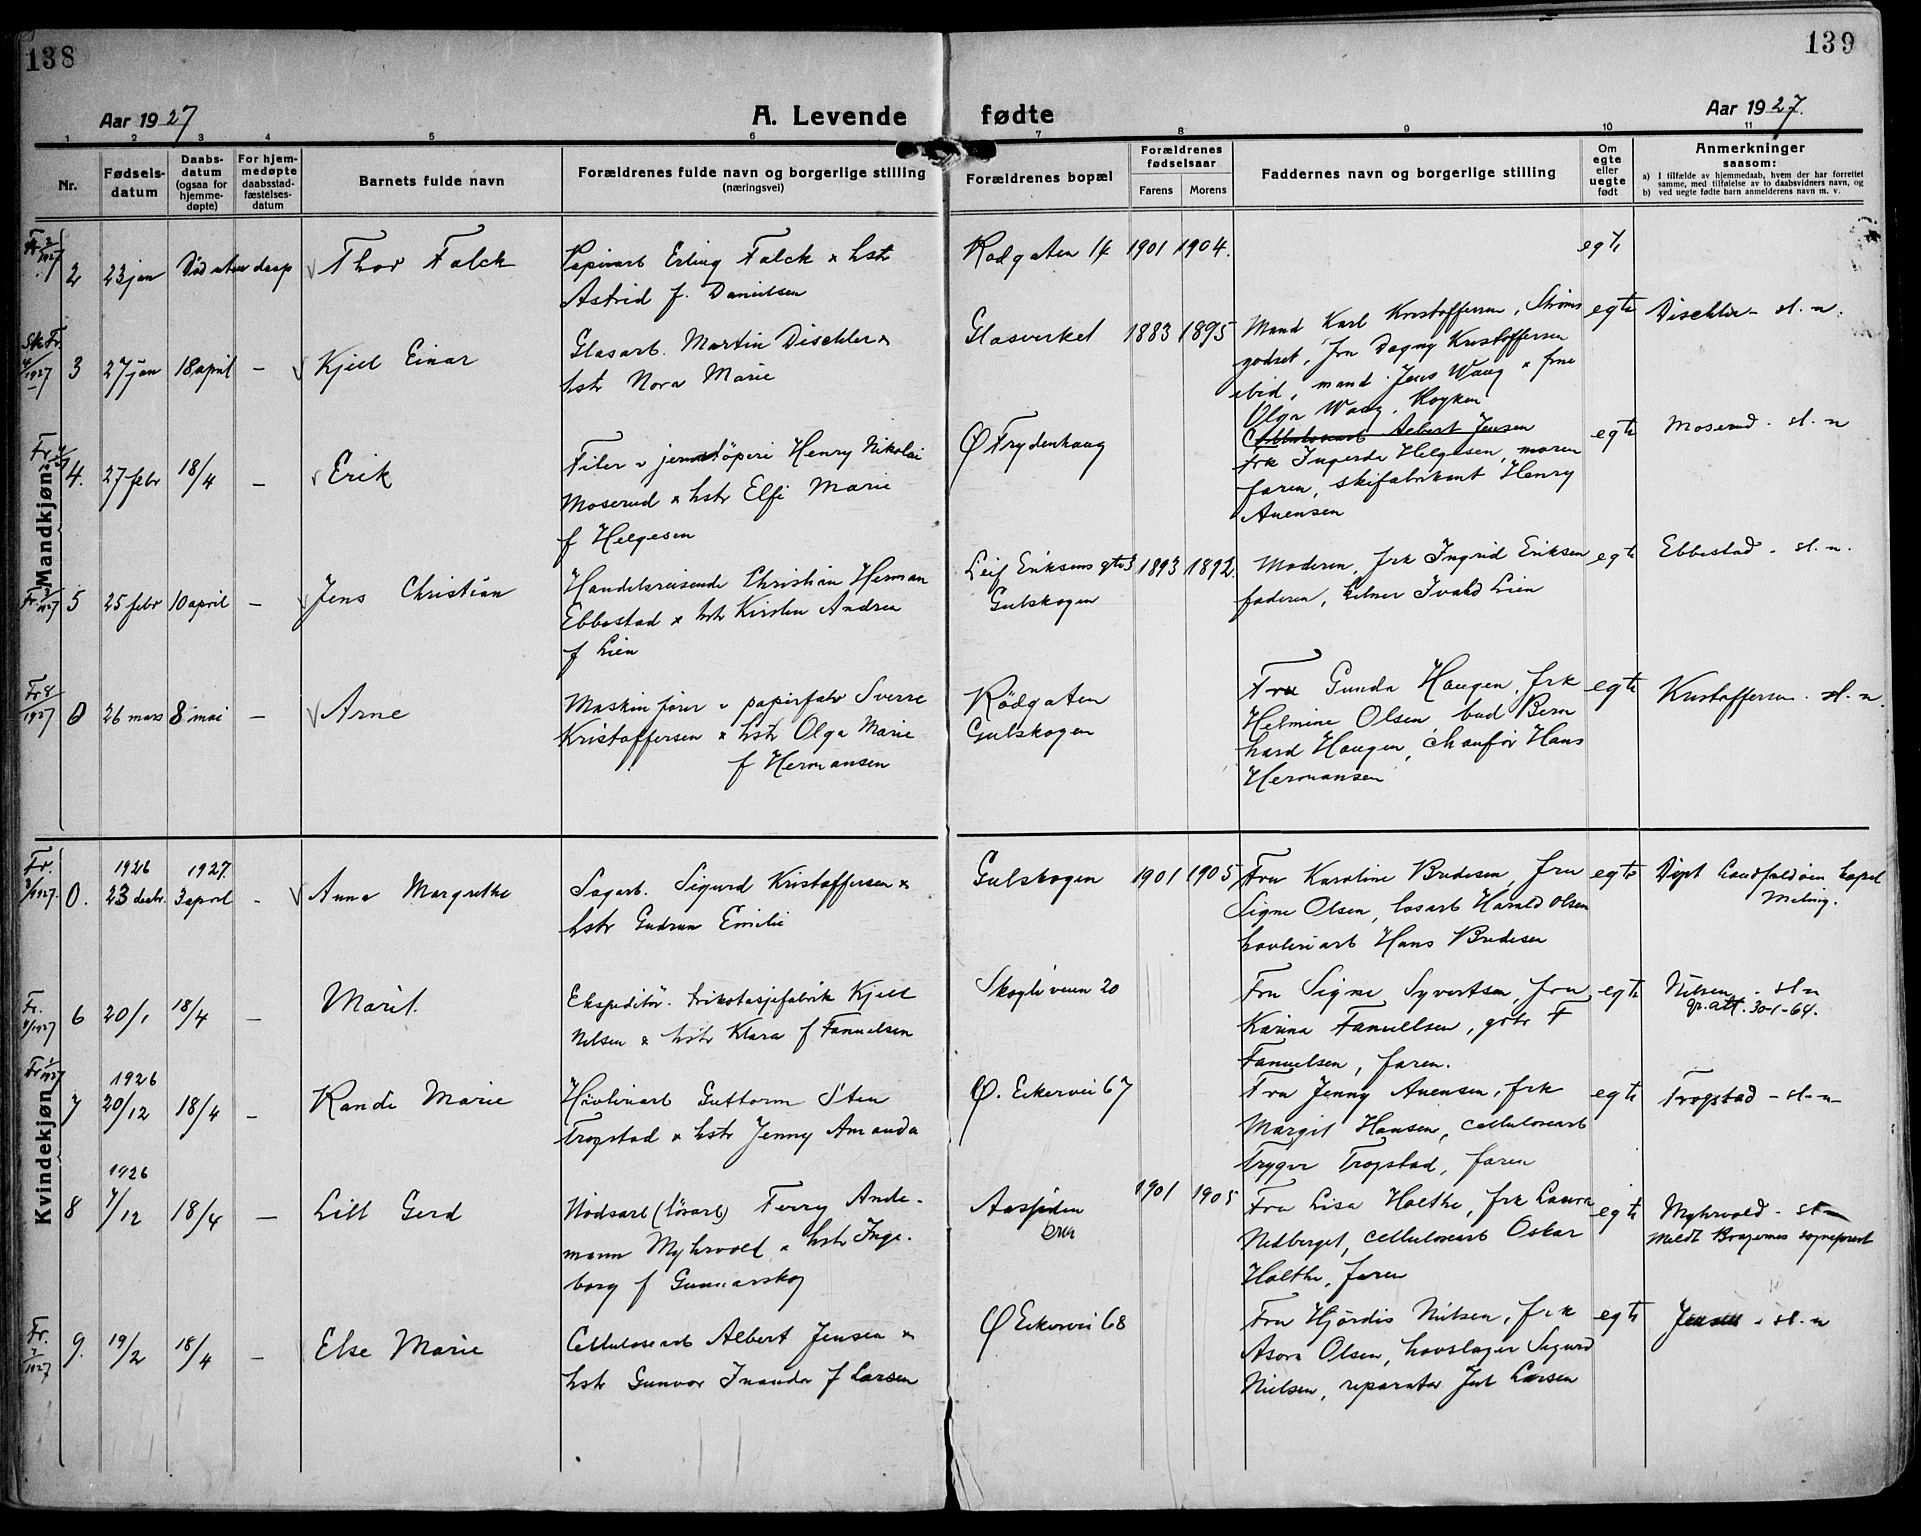 138
139
Aar 1927
A. Levende fødte
Aar 1927.
1 2 3 4 5 6 7 8 9 10 11
Nr.
Fødsels-
datum
Daabs-
datum
(ogsaa for
hjemme-
døpte)
For hjem-
medøpte
daabsstad-
fæstelses-
datum
Barnets fulde navn
Forældrenes fulde navn og borgerlige stilling
(næringsvei)
Forældrenes bopæl
Forældrenes
fødselsaar
Farens Morens
Faddernes navn og borgerlige stilling
Om
egte
eller
uegte
født
Anmerkninger
saasom:
a) I tilfælde av hjemmedaab, hvem der har forrettet
samme, med tilføielse av to daabsvidners navn, og
b) ved uegte fødte barn anmelderens navn m. v.
Mandkjøn
2 23 jan Død uten daap Thor Falck
Papirarb Erling Falck & hstr
Astrid f. Danielsen
Rødgaten 14 1901 1904. egte
3 27 jan 18 april – Kjell Einar
Glasarb. Martin Dischler &
hstr Nora Marie
Glasverket 1883 1895
Mand Karl Kristoffersen, Strøms
godset, fru Dagny Kristoffersen
ibid, mand Jens Waag & frue
Olga Waag. Røyken
egte Dischler – sl. n.
4. 27 febr 18/4 – Erik
Filer v jernstøperi Henry Nikolai
Moserud & hstr Elfi Marie
f Helgesen
Ø Frydenhaug
Cellulosearb Albert Jensen
Frk Ingerda Helgesen, moren
faren, skifabrikant Henry
Auensen
egte Moserud – sl. n
5 25 febr 10 april – Jens Christian
Handelsreisende Christian Herman
Ebbestad & hstr Kirsten Andrea
f Lien
Leif Eriksens gte 3
Gulskogen
1893 1892.
Moderen, frk Ingrid Eriksen
faderen, kelner Ivald Lien
egte Ebbestad – sl. n.
0 26 mars 8 mai – Arne
Maskinfører v papirfabr Sverre
Kristoffersen & hstr Olga Marie
f Hermansen
Rødgaten
Gulskogen
Fru Gunda Haugen, frk
Helmine Olsen, bud Bern
hard Haugen, chaufør Hans
Hermansen
egte Kristoffersen – sl. n.
Kvindekjøn
1926 1927.
0. 23 decbr. 3 april – Anna Margrethe
Sagarb. Sigurd Kristoffersen &
hstr Gudrun Emilie
Gulskogen 1901 1905
Fru Karoline Brudesen, fru
Signe Olsen, losarb Harald Olsen
høvleriarb Hans Brudesen
egte Døpt Landfaldøien kapel
Meling.
6 20/1 18/4 – Marit.
Ekspeditør. trikotasjefabrik Kjell
Nilsen & hstr Klara f Fanuelsen
Skogliveien 20
Fru Signe Syvertsen, fru
Karina Fanuelsen, gbr F
Fanuelsen, faren.
egte Nilsen – sl. n
gr. att. 30-1-64.
1926
7 20/12 18/4 – Randi Marie
Høvleriarb Guttorm Sten
Trogstad & hstr Jenny Amanda
Ø. Eikervei 67
Fru Jenny Auensen, frk
Margit Hansen, cellulosearb
Trygve Trogstad, faren
egte Trogstad – sl. n –
1926
8 7/12 18/4 – Lill Gerd
Nødsarb (løsarb) Ferry Ande-
mann Myhrvold & hstr Inge-
borg f Gunnarskog
Aassiden
1901 1905
Fru Lisa Holthe, frk Laura
Nedberget, cellulosearb Oskar
Holthe, faren
egte Myhrvold – sl n
Meldt Bragernes sogneprest
9. 19/2 18/4 – Else Marie
Cellulosearb Albert Jensen &
hstr Gunvor Inanda f Larsen
Ø Eikervei 68
Fru Hjørdis Nielsen, frk
Asora Olsen, hovslager Sigurd
Nielsen, reparatør Jul Larsen
egte Jensen – sl. n